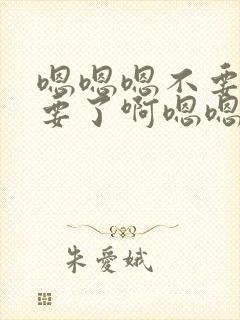 嗯嗯嗯不要
要了啊嗯嗯
朱爱娥